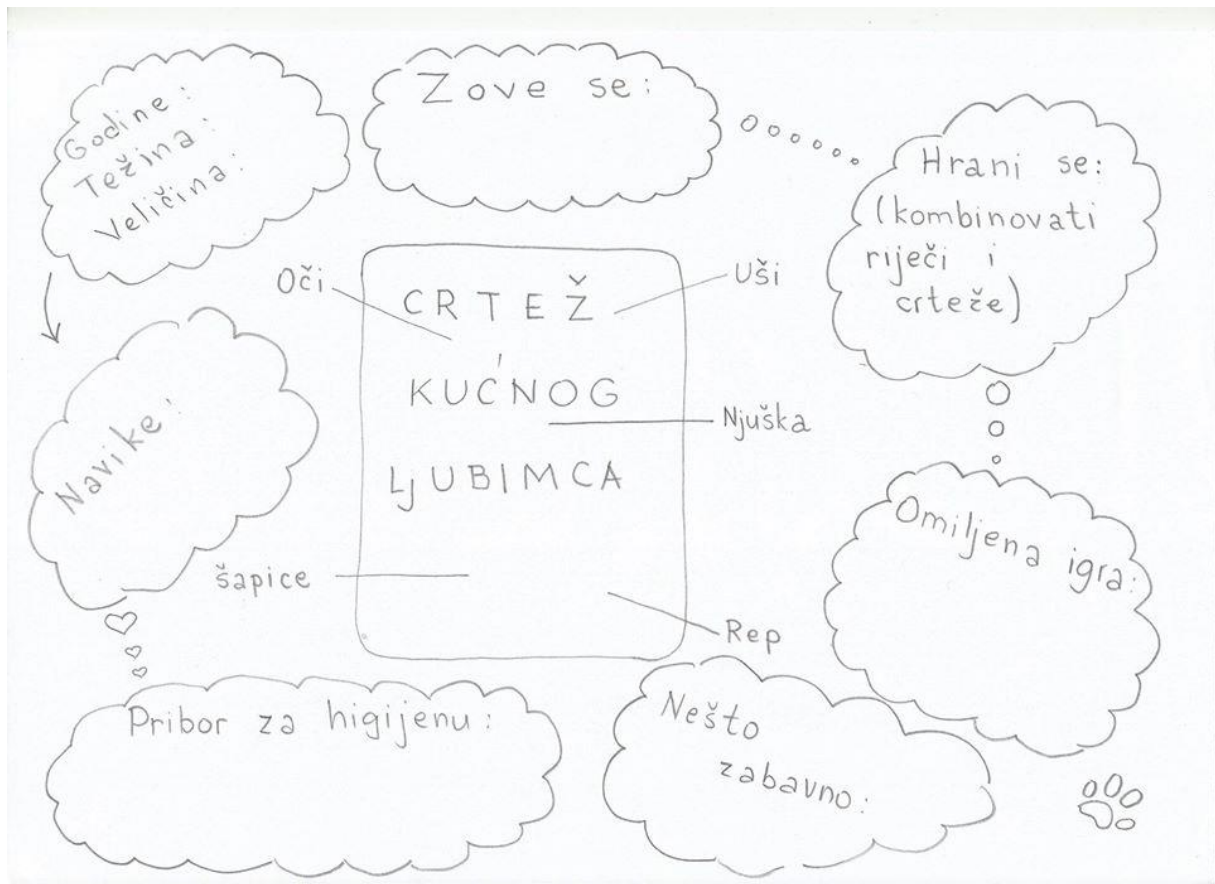 Godine:
Težina:
Veličina:
Zove se:
Hrani se:
(kombinovati
riječi i
crteže)
Oči
Uši
CRTEŽ
KUĆNOG
LJUBIMCA
Njuška
Navike:
Omiljena igra:
šapice
Rep
Pribor za higijenu:
Nešto
zabavno: